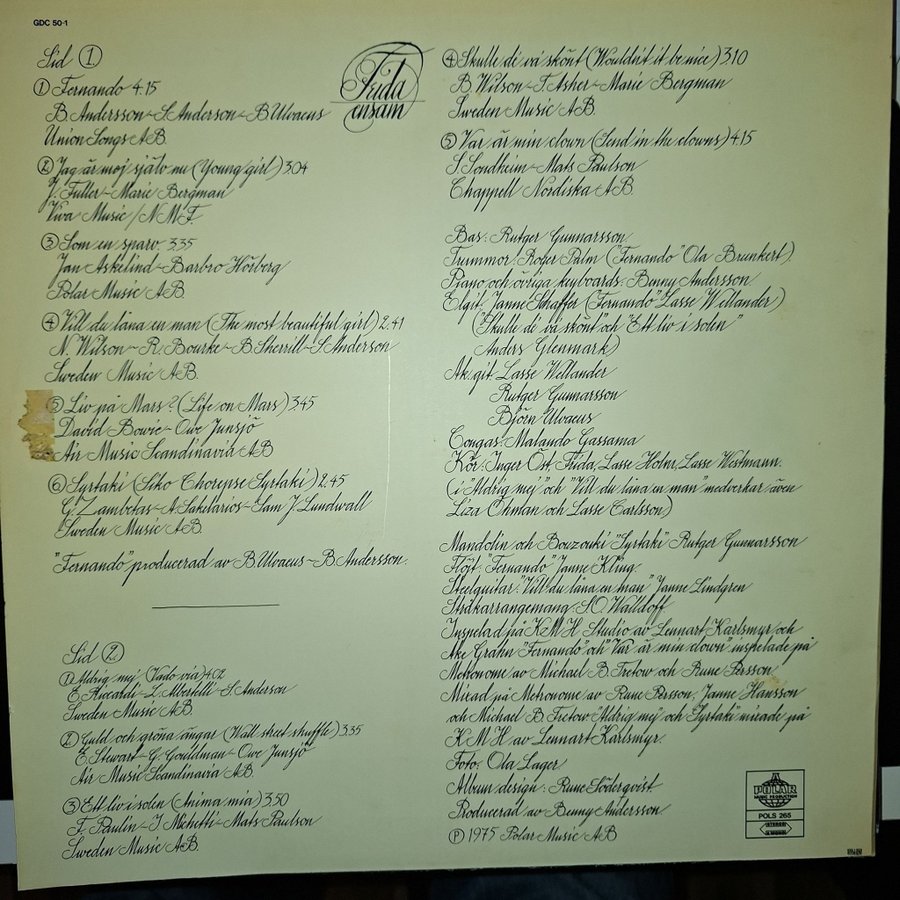 GDC 50-1
Frida
ensam
Sid 1
1 Fernando 4.15
B. Andersson-S. Anderson-B. Ulvaeus
Union Songs AB.
2 Jag är mej själv nu (Young girl) 3.04
J. Fuller-Marie Bergman
Viva Music/NMF.
3 Som en sparv 3.35
Jan Askelind-Barbro Hörberg
Polar Music AB.
4 Vill du låna en man (The most beautiful girl) 2.41
N. Wilson-R. Bourke-B. Sherrill-S. Anderson
Sweden Music AB.
5 Liv på Mars? (Life on Mars) 3.45
David Bowie-Owe Junsjö
Air Music Scandinavia AB
6 Syrtaki (Siko Chorepse Syrtaki) 2.45
G. Zambetas-A. Sakilarios-Sam J. Lundwall
Sweden Music AB.
"Fernando" producerad av B. Ulvaeus-B. Andersson.
Sid 2
1 Aldrig mej (Vado via) 4.02
E. Riccardi-L. Albertelli-S. Anderson
Sweden Music AB.
2 Guld och gröna ängar (Wall street shuffle) 3.35
E. Stewart-G. Gouldman-Owe Junsjö
Air Music Scandinavia AB.
3 Ett liv i solen (Anima mia) 3.50
F. Paulin-I. Michetti-Mats Paulson
Sweden Music AB.
4 Skulle de' va' skönt (Wouldn't it be nice) 3.10
B. Wilson-T. Asher-Marie Bergman
Sweden Music AB.
5 Var är min clown (Send in the clowns) 4.15
S. Sondheim-Mats Paulson
Chappell Nordiska AB.
Bas: Rutger Gunnarsson.
Trummor: Roger Palm ("Fernando" Ola Brunkert)
Piano och övriga keyboards: Benny Andersson.
El.git. Janne Schaffer ("Fernando" Lasse Wellander)
("Skulle de' va' skönt" och "Ett liv i solen"
Anders Glenmark)
Ak.git. Lasse Wellander
Rutger Gunnarsson
Björn Ulvaeus
Congas: Malando Gassama
Kör: Inger Öst, Frida, Lasse Holm, Lasse Westmann.
(i "Aldrig mej" och "Vill du låna en man" medverkar även
Liza Öhman och Lasse Carlsson)
Mandolin och Bouzouki "Syrtaki" Rutger Gunnarsson
Flöjt: "Fernando" Janne Kling.
Steelguitar: "Vill du låna en man" Janne Lindgren
Stråkarrangemang S.O. Walldoff
Inspelad på KMH Studio av Lennart Karlsmyr och
Åke Grahn "Fernando" och "Var är min clown" inspelade på
Metronome av Michael B. Tretow och Rune Persson.
Mixad på Metronome av Rune Persson, Janne Hansson
och Michael B. Tretow "Aldrig mej" och "Syrtaki" mixade på
KMH av Lennart Karlsmyr.
Foto: Ola Lager
Album design: Rune Söderqvist
Producerad av Benny Andersson.
℗ 1975 Polar Music AB
A
POLAR
MUSIC PRODUCTION
POLS 265
STEREO